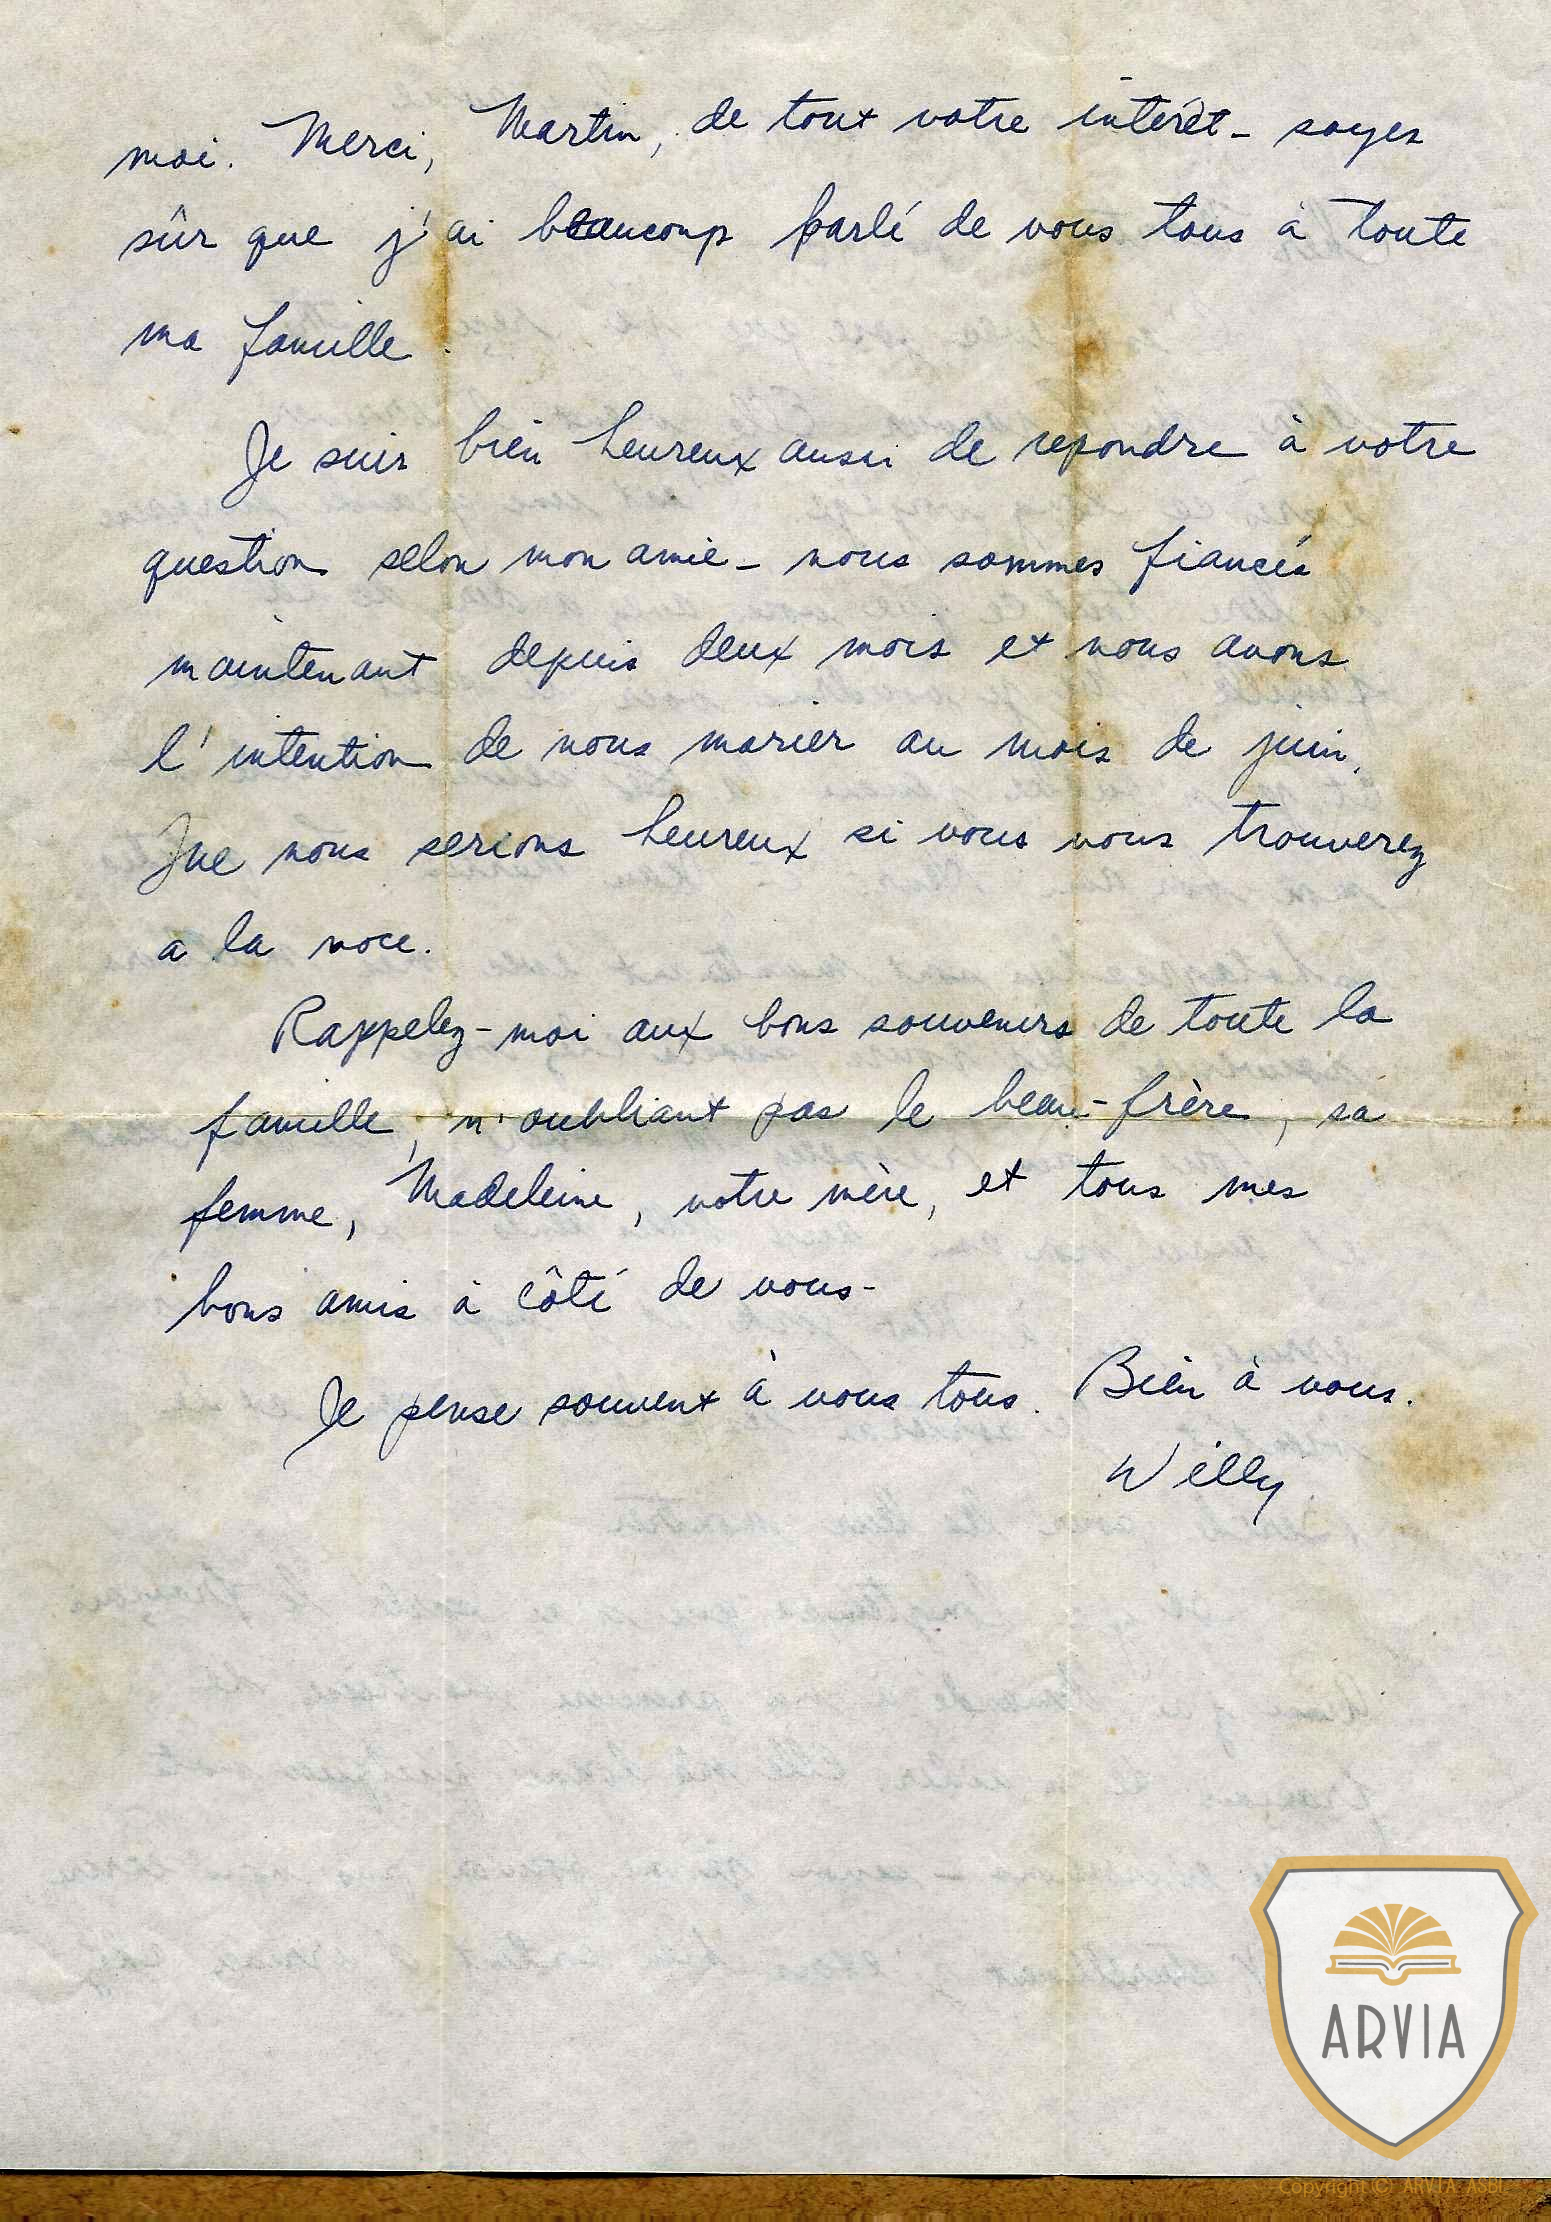 moi. Merci, Martin, de tout votre intérêt - soyes
sûr que j'ai beaucoup parlé de vous tous à toute
ma famille.
Je suis bien heureux aussi de repondre à votre
question selon mon amie - nous sommes fiancés
maintenant depuis deux mois et nous avons
l'intention de nous marier au mois de juin.
Que nous serions heureux si vous vous trouverez
a la noce.
Rappelez-moi aux bons souvenirs de toute la
famille, n'oubliant pas le beau-frère, sa
femme, Madeleine, votre mère, et tous mes
bons amis à côté de vous -
Je pense souvent à vous tous. Bien à vous.
Willy
ARVIA
Copyright (C) ARVIA ASBL